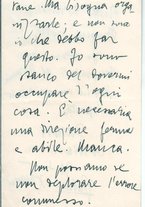 rane. Ma bisogna orga
e non sono
i che debbo far
questo. Io sono
stanco del dovermi
occupare d'ogni
cosa. È necessaria
una direzione ferma
e abile. Manca.
Non possiamo se
non deplorare l'errore
commesso.